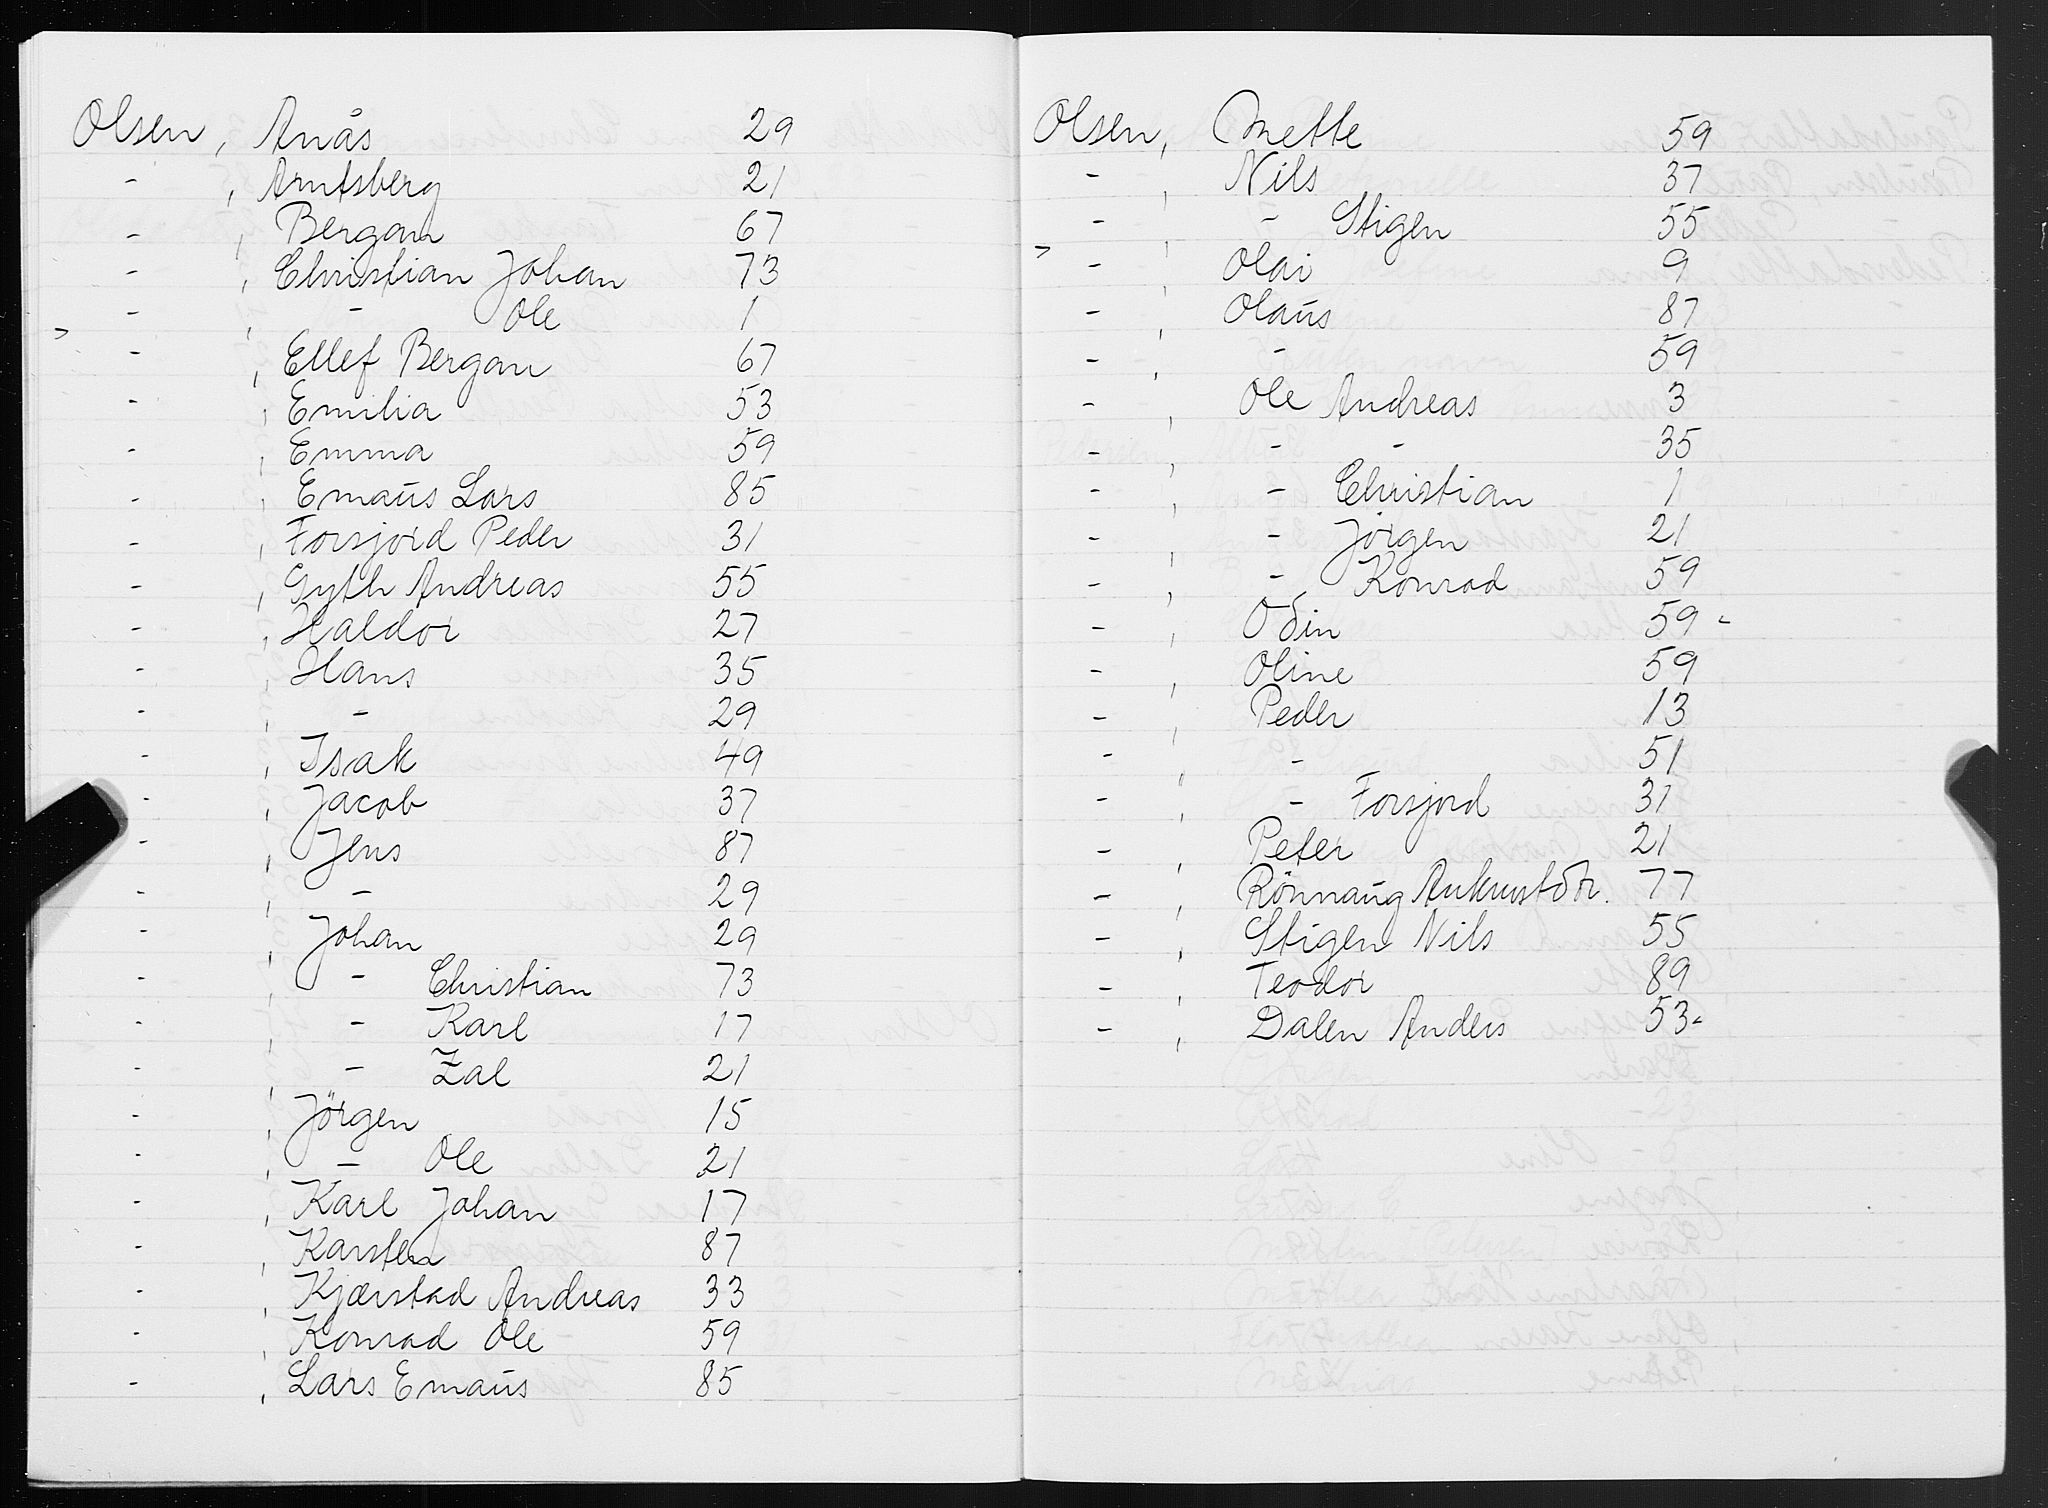 Olsen, Anås 29
- , Arntsberg 21
- , Bergan 67
- , Christian Johan 73
- , - Ole 1
- , Ellef Bergan 67
- , Emilia 53
- , Emma 59
- , Emaus Lars 85
- , Forsjord Peder 31
- , Gyth Andreas 55
- , Haldor 27
- , Hans 35
- , - 29
- , Isak 49
- , Jacob 37
- , Jens 87
- , - 29
- , Johan 29
- , - Christian 73
- , - Karl 17
- , - Zal 21
- , Jörgen 15
- , - Ole 21
- , Karl Johan 17
- , Karsten 87
- , Kjærstad Andreas 33
- , Konrad Ole 59
- , Lars Emaus 85
Olsen, Mette 59
- , Nils 37
- , - Stigen 55
- , Olai 9
- , Olaus 87
- , - 59
- , Ole Andreas 3
- , - - 35
- , - Christian 1
- , - Jörgen 21
- , - Konrad 59
- , Odin 59 -
- , Oline 59
- , Peder 13
- , - 51
- , - Forsjord 31
- , Peter 21
- , Rönnaug 77
- , Stigen Nils 55
- , Teodor 89
- , Dalen Anders 53 -